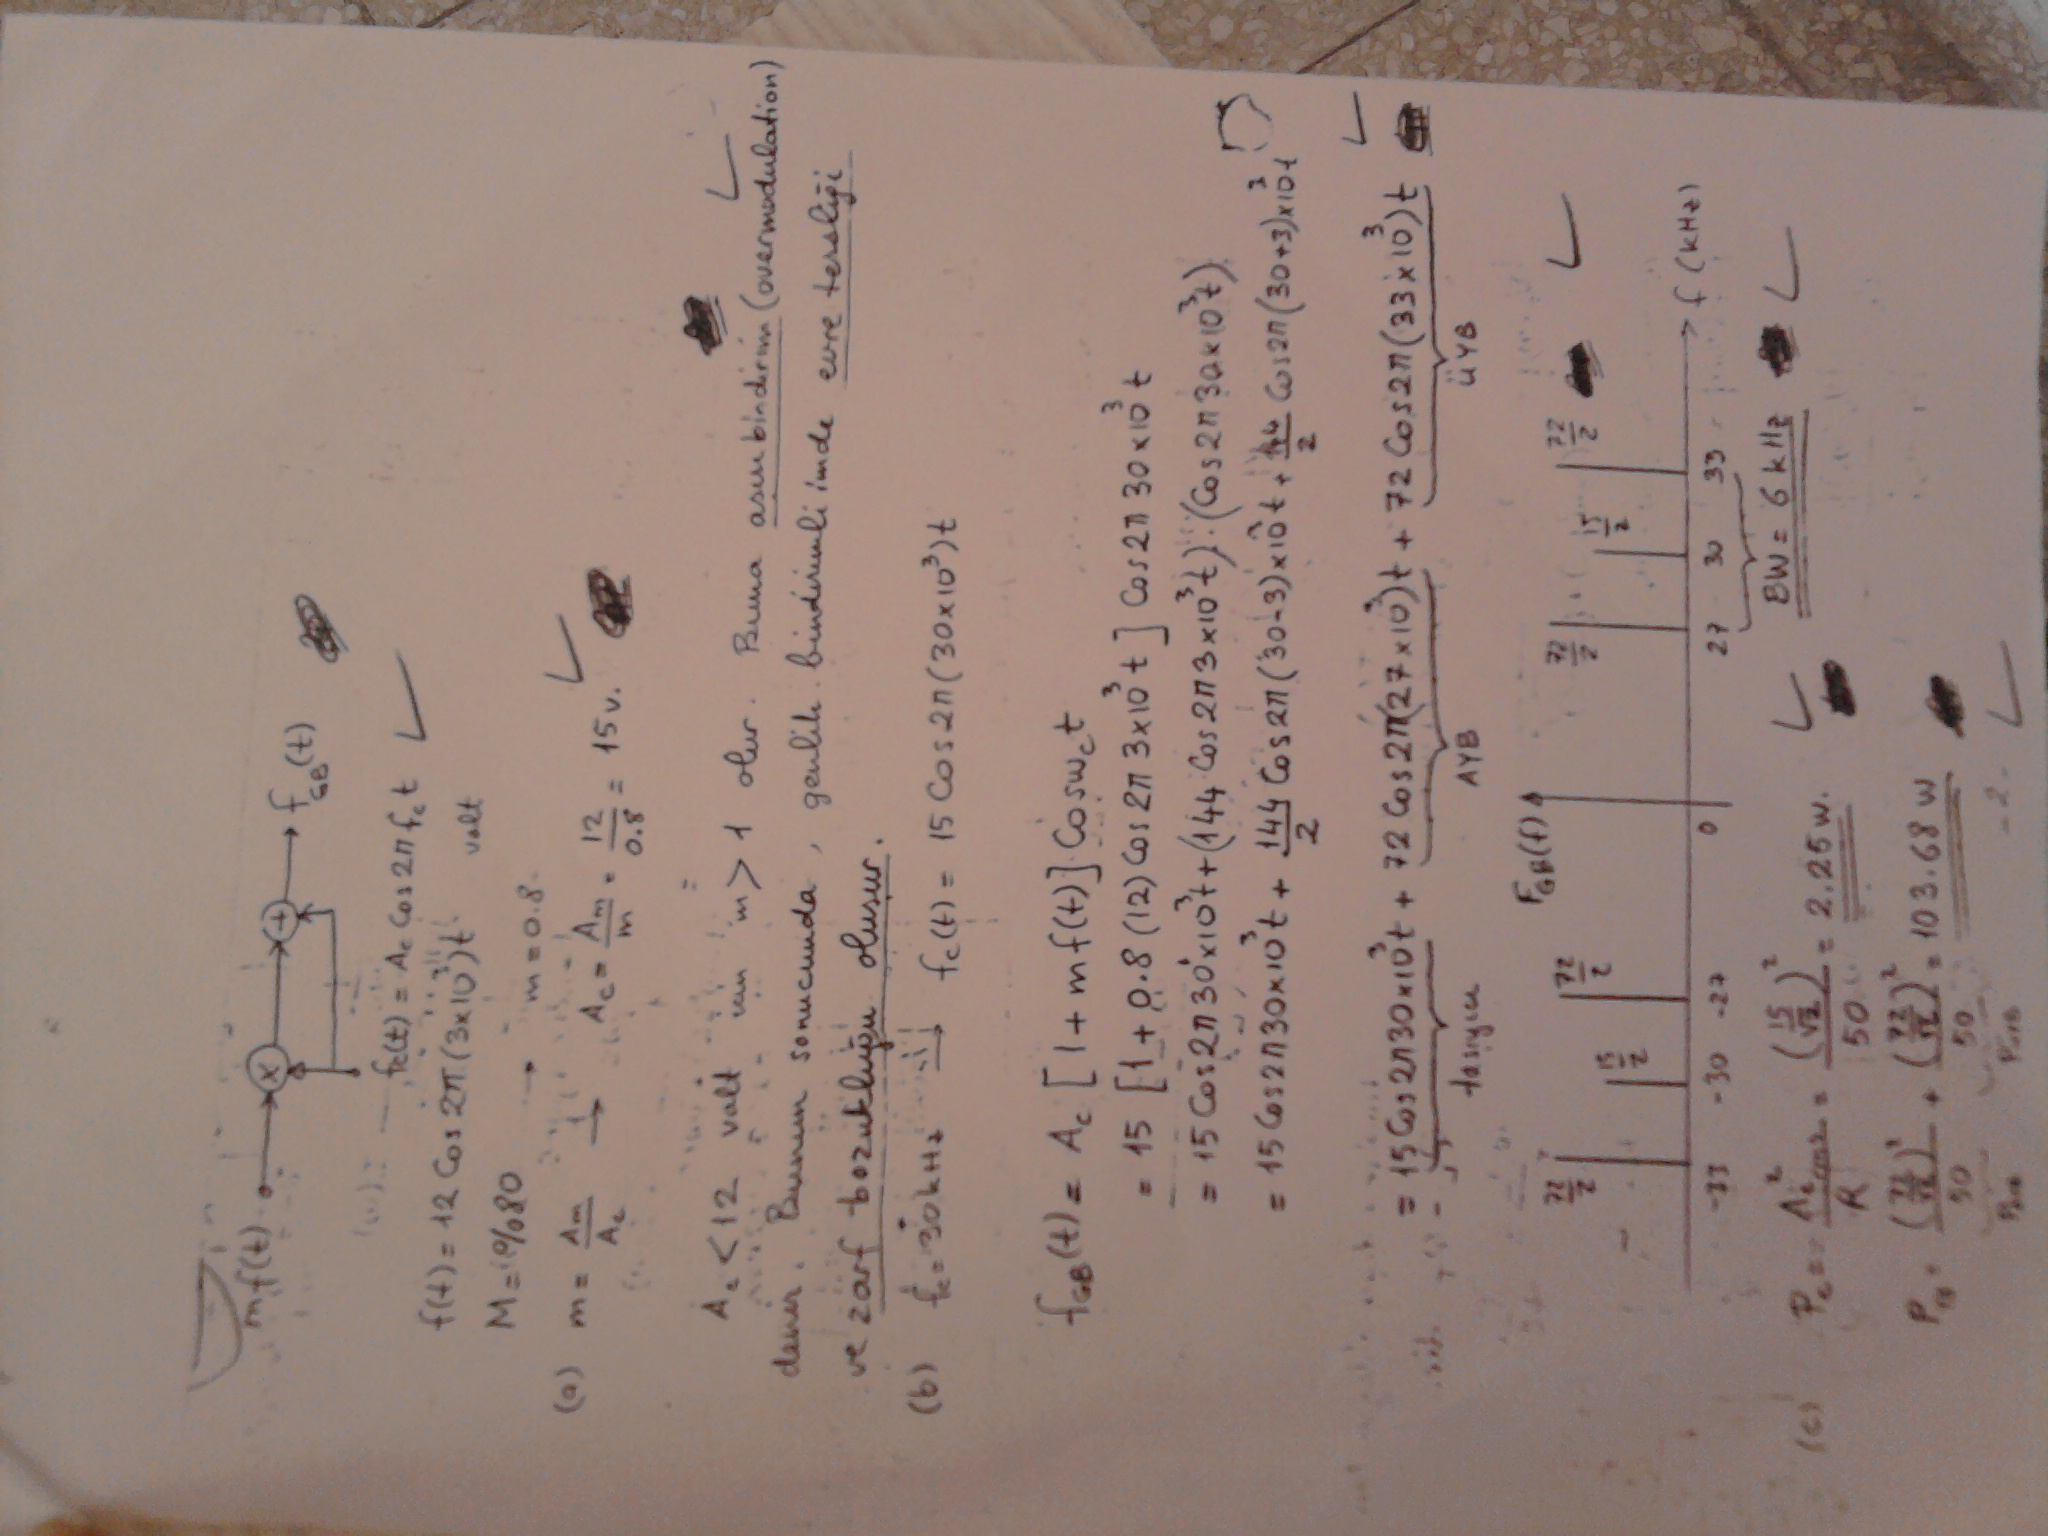 m f(t) × + f_GB(t)
f_c(t) = A_c Cos 2π f_c t
f(t) = 12 Cos 2π(3x10³)t volt
M = %80 → m = 0.8
(a) m = Am/A_c → A_c = Am/m = 12/0.8 = 15 v.
A_c < 12 volt m > 1 olur. Buna aşırı bindirim (overmodulation)
denir. Bunun sonucunda, genlik bindirimli imde evre tersliği
ve zarf bozukluğu oluşur.
(b) f_c = 30 kHz → f_c(t) = 15 Cos 2π(30x10³)t
f_GB(t) = A_c [1 + m f(t)] Cos w_c t
= 15 [1 + 0.8 (12) Cos 2π 3x10³ t] Cos 2π 30x10³ t
= 15 Cos 2π 30x10³ t + (144 Cos 2π 3x10³ t).(Cos 2π 30x10³ t)
= 15 Cos 2π 30x10³ t + 144/2 Cos 2π(30-3)x10³ t + 144/2 Cos 2π(30+3)x10³ t
= 15 Cos 2π 30x10³ t + 72 Cos 2π(27x10³)t + 72 Cos 2π(33x10³)t
taşıyıcı AYB ÜYB
F_GB(f)
72/2 15/2 72/2 72/2 15/2 72/2
-33 -30 -27 0 27 30 33 f (kHz)
BW = 6 kHz
(c) P_c = A_c²rms/R = (15/√2)²/50 = 2.25 w.
= (72/√2)²/50 + (72/√2)²/50 = 103.68 W